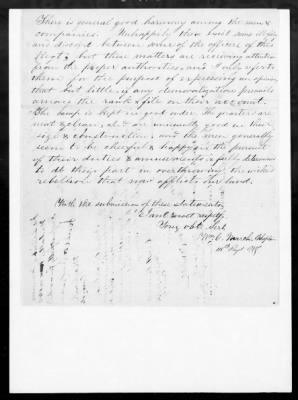 There is general good harmony among the men &
companies. Unhappily there has been some
and discord between some of the officers of this
but these matters are receiving attention
from the proper authorities, and I only refer to
them for the purpose of expressing an opinion
that but little if any demoralization prevails
among the rank & file on their account.
The camp is kept in good order. The quarters are
neat & clean, & are unusually good in their
size & construction, and the men generally
seem to be cheerful & happy in the pursuit
of their duties & amusements & fully determined
to do their part in overthrowing the wicked
rebellion that now afflicts our land.
With the submission of these statements
I am most respty.
Your obt. Servt.
Wm. C.